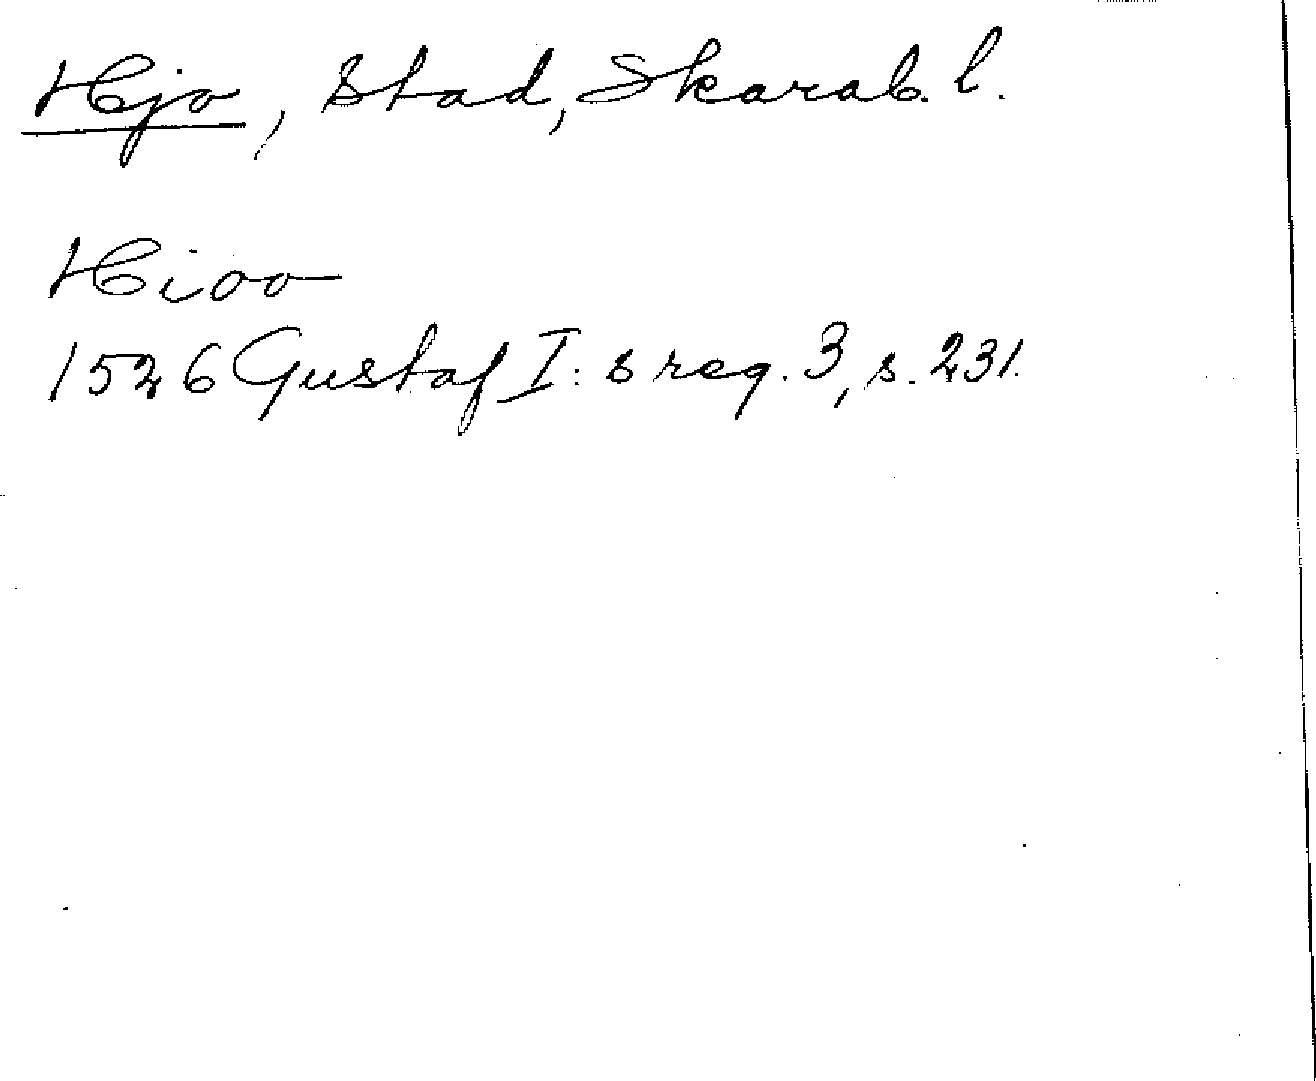 Hjo, Stad, Skarab. l.
Hioo
1526 Gustaf I: s reg. 3, s. 231.